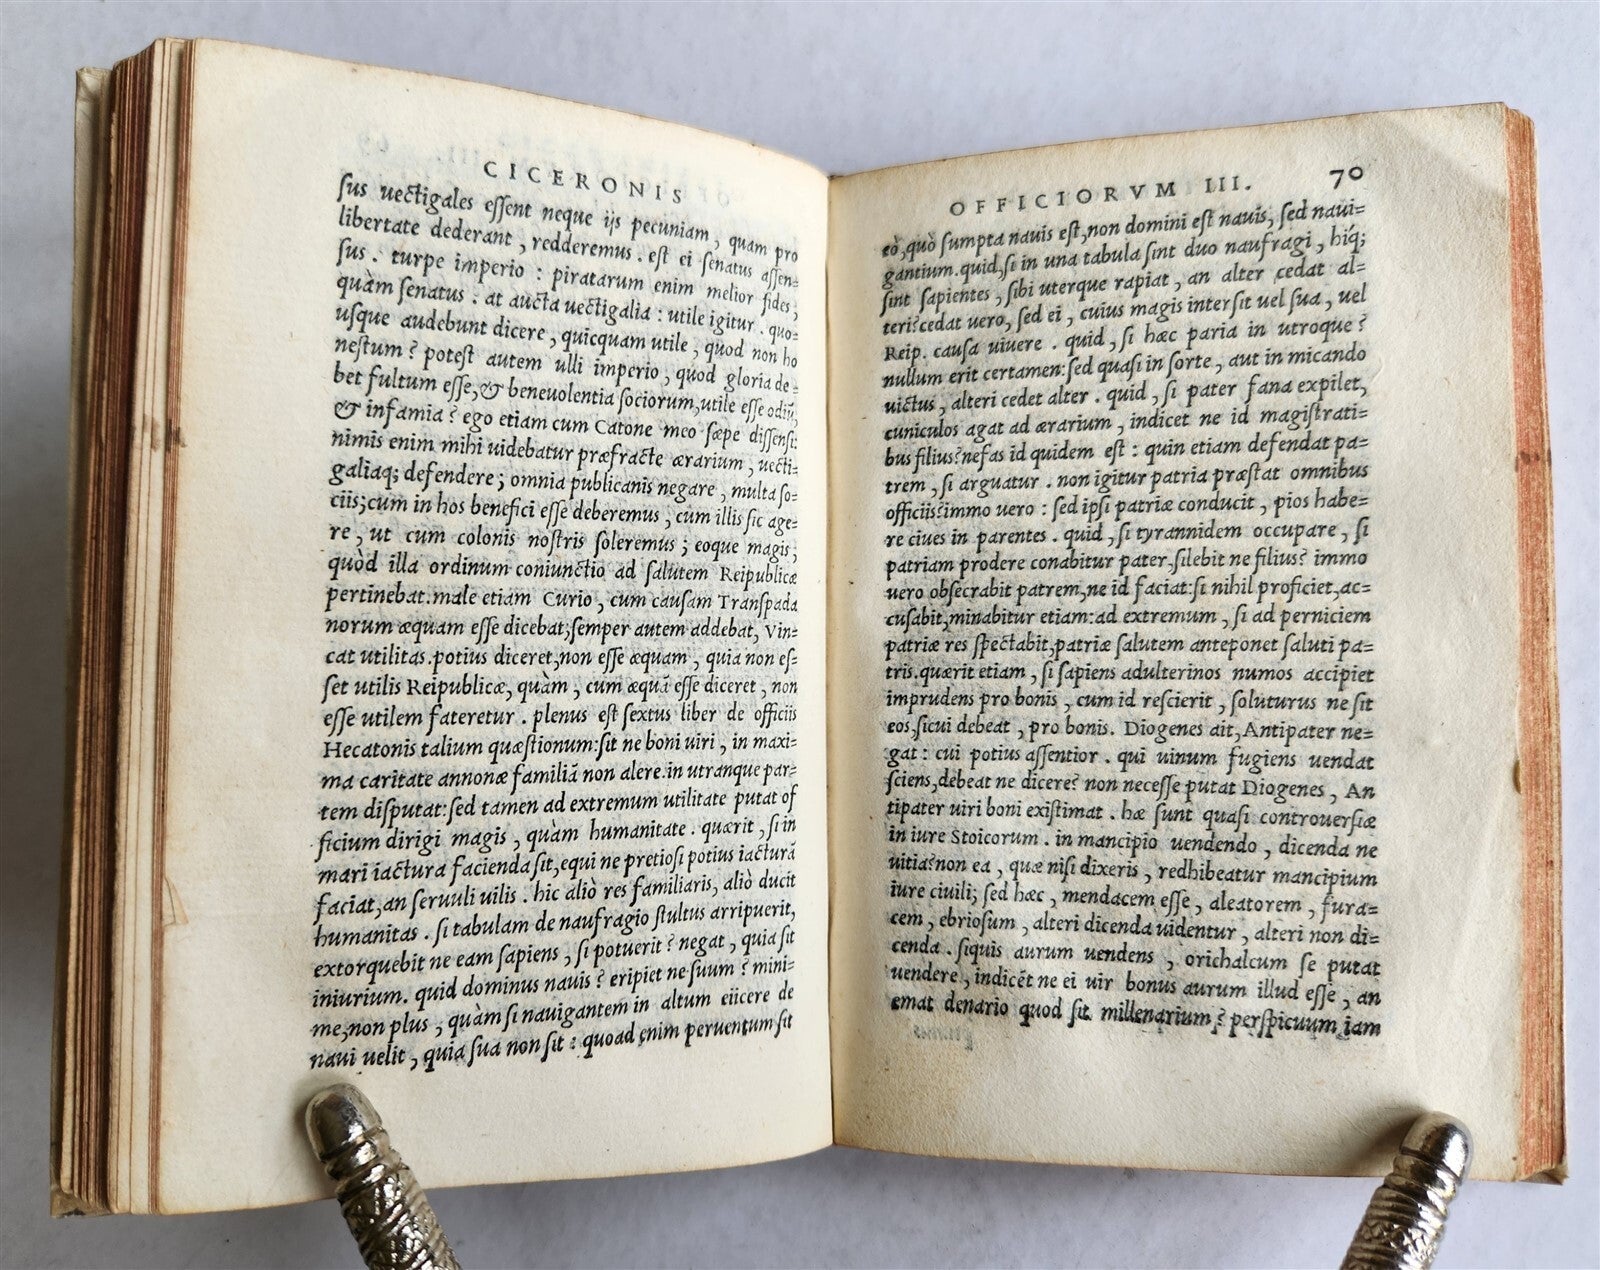 CICERONIS
sus vectigales essent neque ijs pecuniam, quam pro
libertate dederant, redderemus. est ei senatus assen=
sus. turpe imperio: piratarum enim melior fides,
quàm senatus. at aucta vectigalia: utile igitur. quo=
usque audebunt dicere, quicquam utile, quod non ho
nestum? potest autem ulli imperio, quod gloria de=
bet fultum esse, & benevolentia sociorum, utile esse odiũ,
& infamia? ego etiam cum Catone meo sæpe dissensi:
nimis enim mihi uidebatur præfracte ærarium, uecti=
galiaq; defendere; omnia publicanis negare, multa so=
ciis; cum in hos benefici esse deberemus, cum illis sic age=
re, ut cum colonis nostris soleremus; eoque magis,
quòd illa ordinum coniunctio ad salutem Reipublicæ
pertinebat. male etiam Curio, cum causam Transpada
norum æquam esse dicebat; semper autem addebat, Vin=
cat utilitas. potius diceret, non esse æquam, quia non es=
set utilis Reipublicæ, quàm, cum æquã esse diceret, non
esse utilem fateretur. plenus est sextus liber de officiis
Hecatonis talium quæstionum: sit ne boni uiri, in maxi=
ma caritate annonæ familiã non alere. in utranque par=
tem disputat: sed tamen ad extremum utilitate putat of
ficium dirigi magis, quàm humanitate. quærit, si in
mari iactura facienda sit, equi ne pretiosi potius iacturã
faciat, an seruuli uilis. hic aliò res familiaris, aliò ducit
humanitas. si tabulam de naufragio stultus arripuerit,
extorquebit ne eam sapiens, si potuerit? negat, quia sit
iniurium. quid dominus nauis? eripiet ne suum? mini=
me, non plus, quàm si nauigantem in altum eiicere de
naui uelit, quia sua non sit: quoad enim peruentum sit
OFFICIORVM III. 70
eò, quò sumpta nauis est, non domini est nauis, sed naui=
gantium. quid, si in una tabula sint duo naufragi, hiq́;
sint sapientes, sibi uterque rapiat, an alter cedat al=
teri? cedat uero, sed ei, cuius magis intersit uel sua, uel
Reip. causa uiuere. quid, si hæc paria in utroque?
nullum erit certamen: sed quasi in sorte, aut in micando
uictus, alteri cedet alter. quid, si pater fana expilet,
cuniculos agat ad ærarium, indicet ne id magistrati=
bus filius? nefas id quidem est: quin etiam defendat pa=
trem, si arguatur. non igitur patria præstat omnibus
officiis? immo uero: sed ipsi patriæ conducit, pios habe=
re ciues in parentes. quid, si tyrannidem occupare, si
patriam prodere conabitur pater, silebit ne filius? immo
uero obsecrabit patrem, ne id faciat: si nihil proficiet, ac=
cusabit, minabitur etiam: ad extremum, si ad perniciem
patriæ res spectabit, patriæ salutem anteponet saluti pa=
tris. quærit etiam, si sapiens adulterinos numos accipiet
imprudens pro bonis, cum id rescierit, soluturus ne sit
eos, sicui debeat, pro bonis. Diogenes ait, Antipater ne=
gat: cui potius assentior. qui uinum fugiens uendat
sciens, debeat ne dicere? non necesse putat Diogenes, An
tipater uiri boni existimat. hæ sunt quasi controuersiæ
in iure Stoicorum. in mancipio uendendo, dicenda ne
uitia? non ea, quæ nisi dixeris, redhibeatur mancipium
iure ciuili; sed hæc, mendacem esse, aleatorem, fura=
cem, ebriosum, alteri dicenda uidentur, alteri non di=
cenda. siquis aurum uendens, orichalcum se putat
uendere, indicét ne ei uir bonus aurum illud esse, an
emat denario quod sit millenarium? perspicuum iam